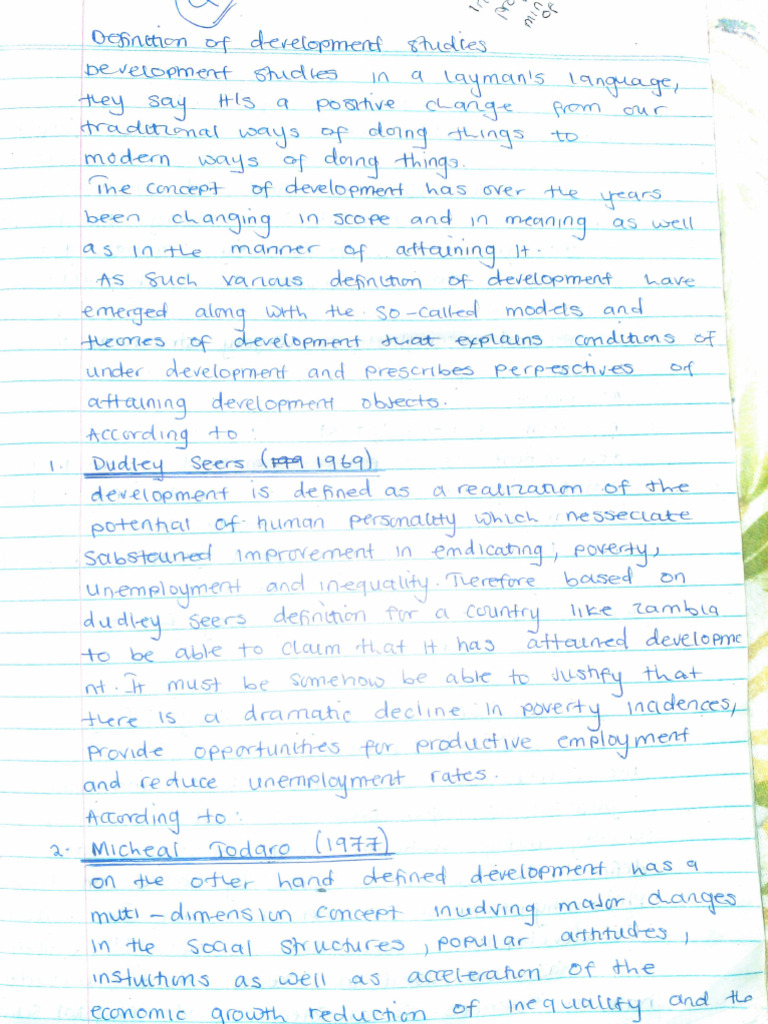 Definition of development studies
Development studies in a layman's language,
they say it is a positive change from our
traditional ways of doing things to
modern ways of doing things.
The concept of development has over the years
been changing in scope and in meaning as well
as in the manner of attaining it.
As such various definition of development have
emerged along with the so-called models and
theories of development that explains conditions of
under development and prescribes perpesctives of
attaining development objects.
According to:
1. Dudley Seers (1969)
development is defined as a realization of the
potential of human personality which nesseciate
sabstained improvement in emdicating; poverty,
unemployment and inequality. Therefore based on
dudley seers definition for a country like zambia
to be able to claim that it has attained developme
nt. It must be somehow be able to Justify that
there is a dramatic decline in poverty incidences,
provide opportunities for productive employment
and reduce unemployment rates.
According to:
2. Micheal Todaro (1977)
on the other hand defined development has a
muti-dimension concept invdving major changes
in the social structures, popular attitudes,
instuctions as well as acceleration of the
economic growth reduction of inequality and the